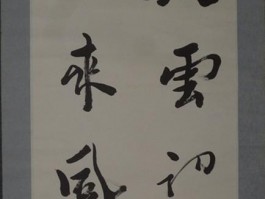 雲初
來風